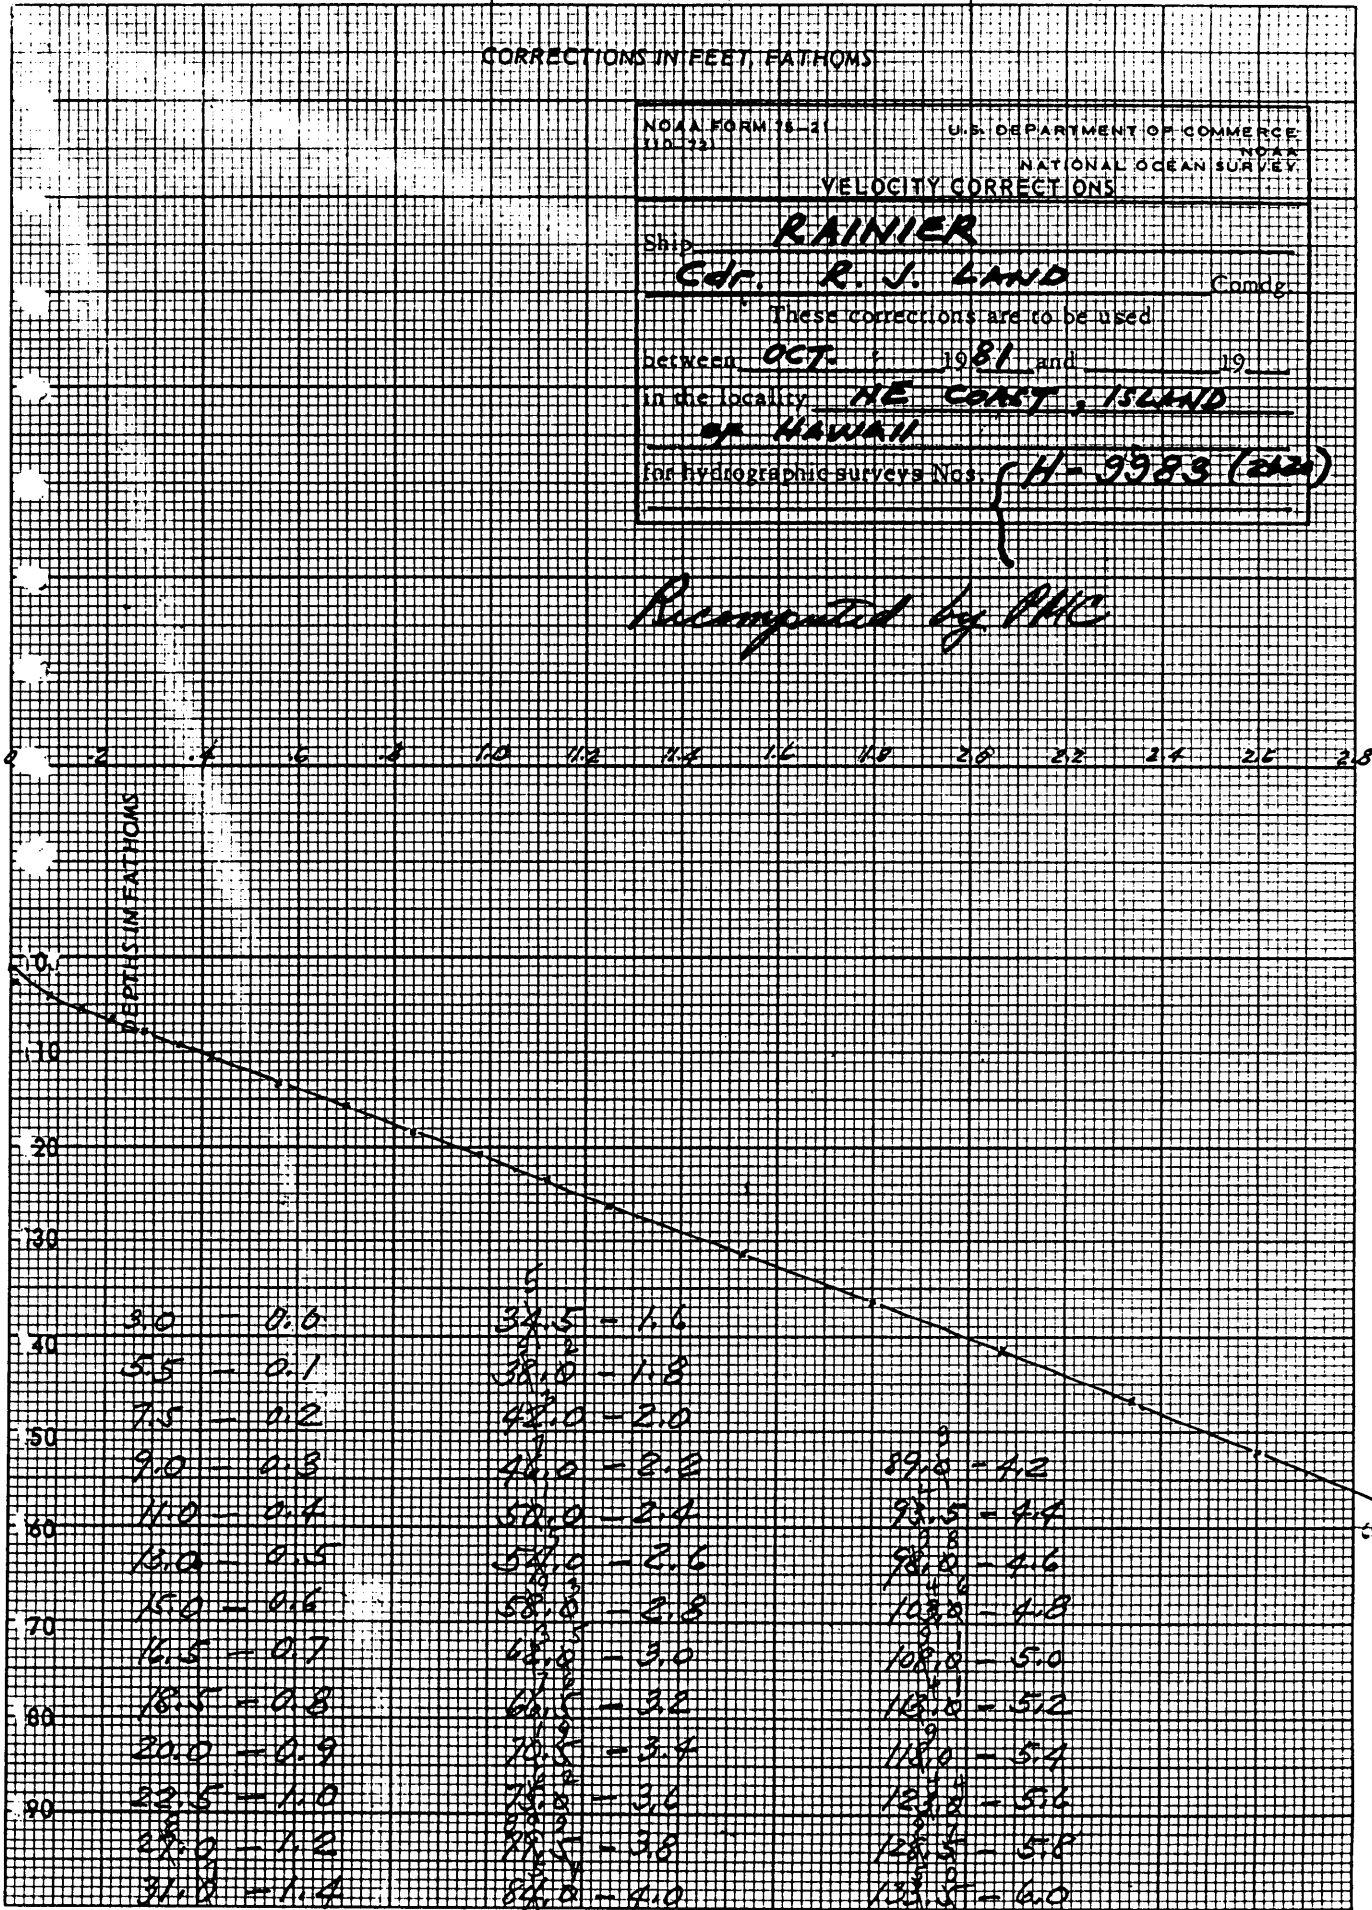 CORRECTIONS IN FEET, FATHOMS
NOAA FORM 76-21
(10-72)
U.S. DEPARTMENT OF COMMERCE
NOAA
NATIONAL OCEAN SURVEY
VELOCITY CORRECTIONS
Ship RAINIER
Cdr. R. J. LAND Comdg.
These corrections are to be used
between OCT. 1981 and 19
in the locality NE COAST, ISLAND
OF HAWAII
for hydrographic surveys Nos. { H-9983
Recomputed by PMC
0 .2 .4 .6 .8 1.0 1.2 1.4 1.6 1.8 2.0 2.2 2.4 2.6 2.8
DEPTHS IN FATHOMS
0
10
20
30
40
50
60
70
80
90
3.0 - 0.0
5.5 - 0.1
7.5 - 0.2
9.0 - 0.3
11.0 - 0.4
13.0 - 0.5
15.0 - 0.6
16.5 - 0.7
18.5 - 0.8
20.0 - 0.9
22.5 - 1.0
- 1.2
- 1.4
- 1.6
- 1.8
- 2.0
- 2.2
- 2.4
- 2.6
- 2.8
- 3.0
- 3.2
- 3.4
- 3.6
- 3.8
- 4.0
- 4.2
- 4.4
- 4.6
- 4.8
- 5.0
- 5.2
- 5.4
- 5.6
- 5.8
- 6.0